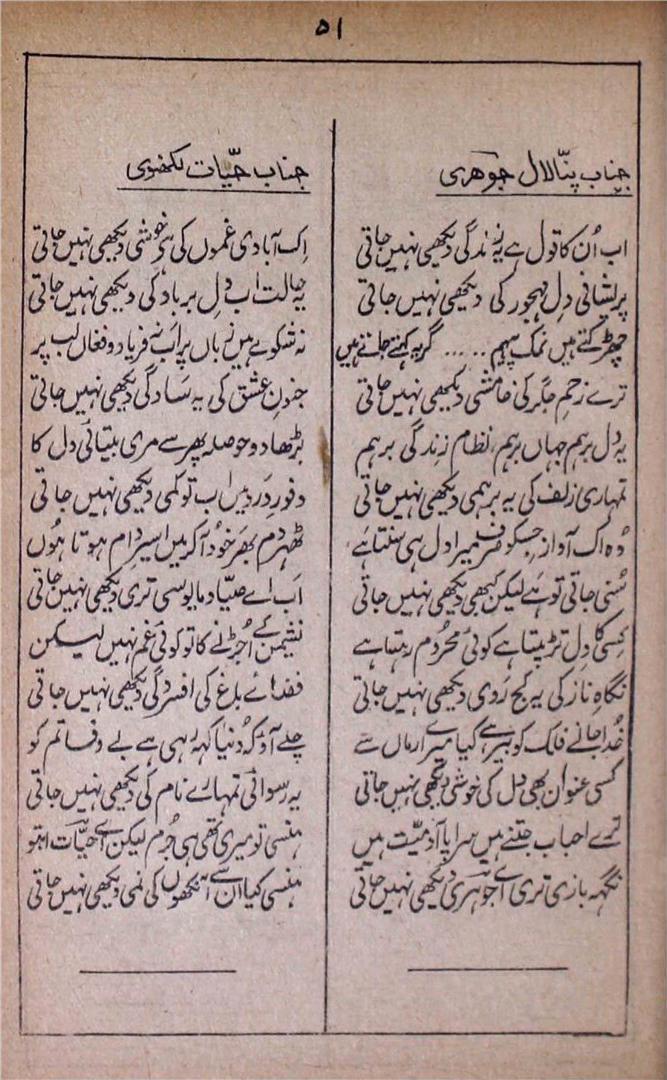 ۵۱
جناب پنّا لال جوہری
اب اُن کا قول ہے یہ زندگی دیکھی نہیں جاتی
پریشانی دلِ مہجور کی دیکھی نہیں جاتی
چھڑکتے ہیں نمک پیہم ..... گر یہ کہتے جاتے ہیں
ترے زخمِ جگر کی خامشی دیکھی نہیں جاتی
یہ دل برہم جہاں برہم، نظامِ زندگی برہم
تمہاری زلف کی یہ برہمی دیکھی نہیں جاتی
وہ اک آواز جسکو صرف میرا دل ہی سنتا ہے
سُنی جاتی تو ہے لیکن کبھی دیکھی نہیں جاتی
کِسی کا دِل تڑپتا ہے کوئی محرُوم رہتا ہے
نگاہِ ناز کی یہ کج رَوی دیکھی نہیں جاتی
خُدا جانے فلک کو بیر ہے کیا میرے ارماں سے
کسی عنواں بھی دل کی خوشی دیکھی نہیں جاتی
ترے احباب جتنے ہیں سراپا آدمیّت ہیں
نگہہ بازی تری اے جوہری دیکھی نہیں جاتی
جناب حیّات لکھنوی
اِک آبادی غموں کی ہر خوشی دیکھی نہیں جاتی
یہ حالت اب دلِ برباد کی دیکھی نہیں جاتی
نہ شکوے ہیں زباں پر اب نہ فریاد و فغاں لب پر
جنونِ عشق کی یہ سَادگی دیکھی نہیں جاتی
بڑھا دو حوصلہ پھر سے مری بیتابیٔ دل کا
وفورِ دَرد میں اب تو کمی دیکھی نہیں جاتی
ٹھہر دم بھر خود آکر میں اسیرِ دام ہوتا ہُوں
اَب اے صیّاد مایوسی تری دیکھی نہیں جاتی
نشیمن کے اُجڑنے کا تو کوئی غم نہیں لیکن
فضائے باغ کی افسردگی دیکھی نہیں جاتی
چلے آؤ کہ دُنیا کہہ رہی ہے بے وفا تم کو
یہ رسوائی تمہارے نام کی دیکھی نہیں جاتی
ہنسی تو میری تھی ہی جُرم لیکن اے حیّات ابتو
ہنسی کیا اُن سے آنکھوں کی نمی دیکھی نہیں جاتی